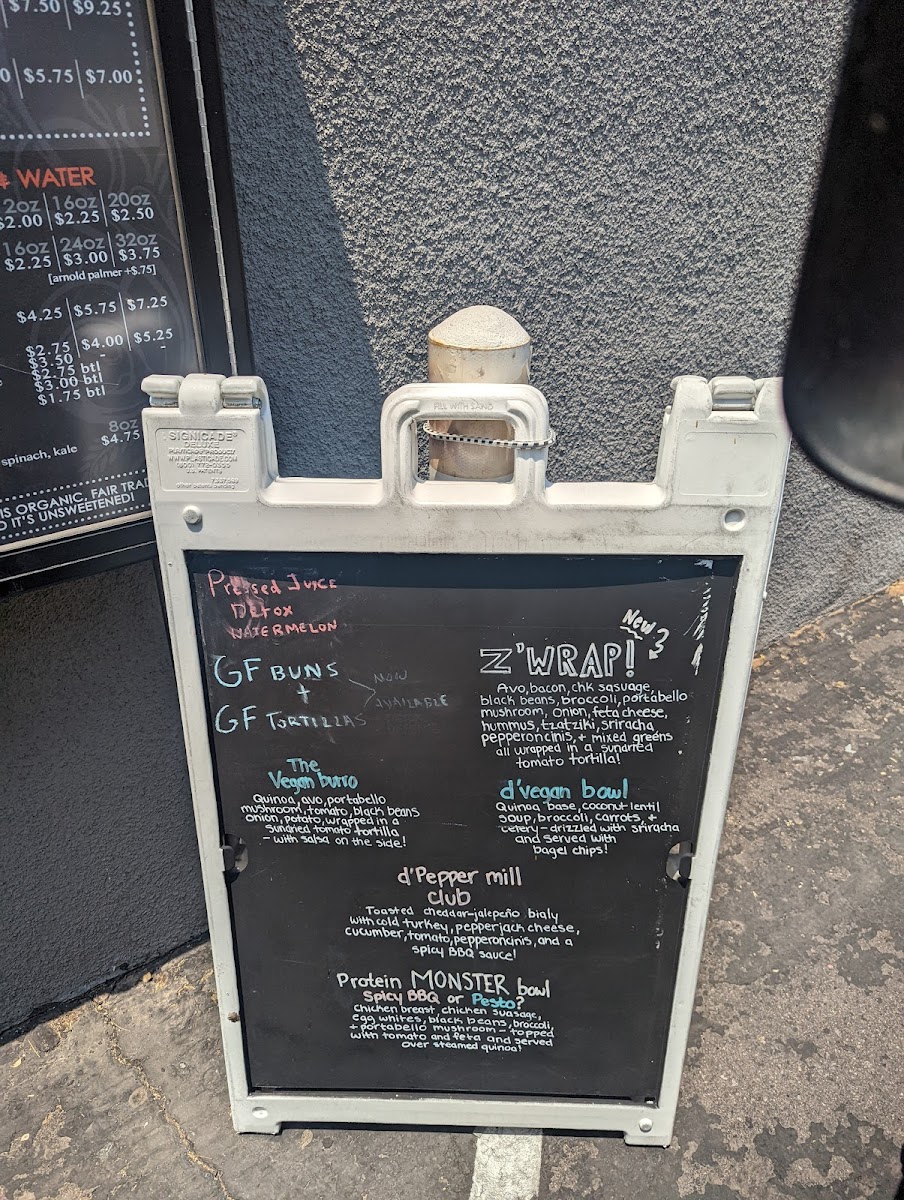 $7.50 $9.25
$5.75 $7.00
WATER
2oz 16oz 20oz
$2.00 $2.25 $2.50
16oz 24oz 32oz
$2.25 $3.00 $3.75
[arnold palmer +$.75]
$4.25 $5.75 $7.25
$2.75 $4.00 $5.25
$3.50 - -
$2.75 btl
$3.00 btl
$1.75 btl
8oz
$4.75
spinach, kale
IS ORGANIC, FAIR TRAD
IT'S UNSWEETENED!
FILL WITH SAND
SIGNICADE®
DELUXE
Pressed Juice
Detox
WATERMELON
GF BUNS
+
GF TORTILLAS
NOW
AVAILABLE
New
Z'WRAP!
Avo, bacon, chk sasuage,
black beans, broccoli, portabello
mushroom, onion, feta cheese,
hummus, tzatziki, sriracha,
pepperoncinis, + mixed greens
all wrapped in a sundried
tomato tortilla!
The
Vegan burro
Quinoa, avo, portabello
mushroom, tomato, black beans
onion, potato, wrapped in a
sundried tomato tortilla
- with salsa on the side!
d'vegan bowl
Quinoa base, coconut lentil
soup, broccoli, carrots, +
celery - drizzled with sriracha
and served with
bagel chips!
d'Pepper mill
club
Toasted cheddar-jalepeño bialy
with cold turkey, pepperjack cheese,
cucumber, tomato, pepperoncinis, and a
spicy BBQ sauce!
Protein MONSTER bowl
Spicy BBQ or Pesto?
chicken breast, chicken suasage,
egg whites, black beans, broccoli,
+ portabello mushroom - topped
with tomato and feta and served
over steamed quinoa!